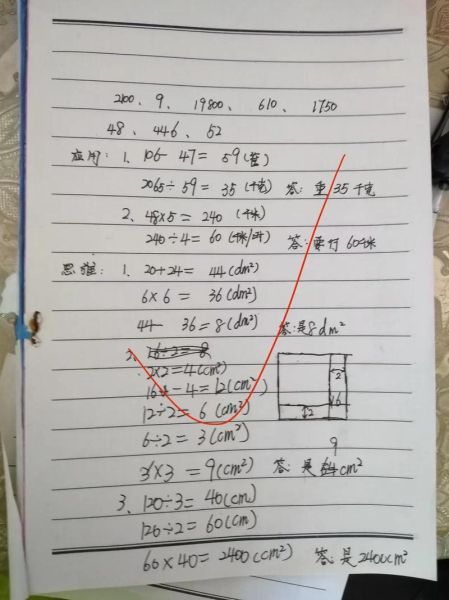 2100、9、19800、610、1750
48、446、52
应用：1、106-47=59(筐)
2065÷59=35(千克) 答：重35千克
2、48×5=240(千米)
240÷4=60(千米/时) 答：乘行60千米
思维：1、20+24=44(dm²)
6×6=36(dm²)
44-36=8(dm²) 答：是8dm²
2、
2×2=4(cm²)
16-4=12(cm²)
2
12÷2=6(cm²)
6
2
6÷2=3(cm²)
3×3=9(cm²) 答：是9cm²
3、120÷3=40(cm)
120÷2=60(cm)
60×40=2400(cm²) 答：是2400cm²